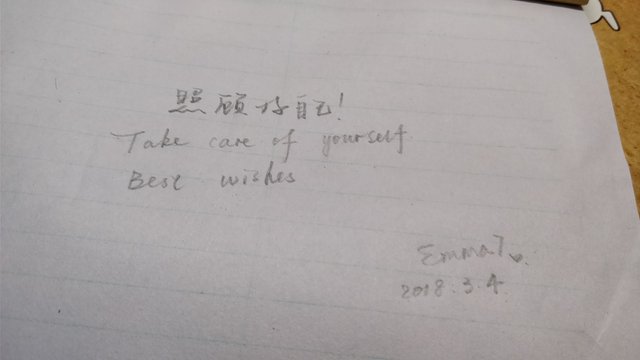 照顾好自己!
Take care of yourself
Best wishes
Emma
2018.3.4